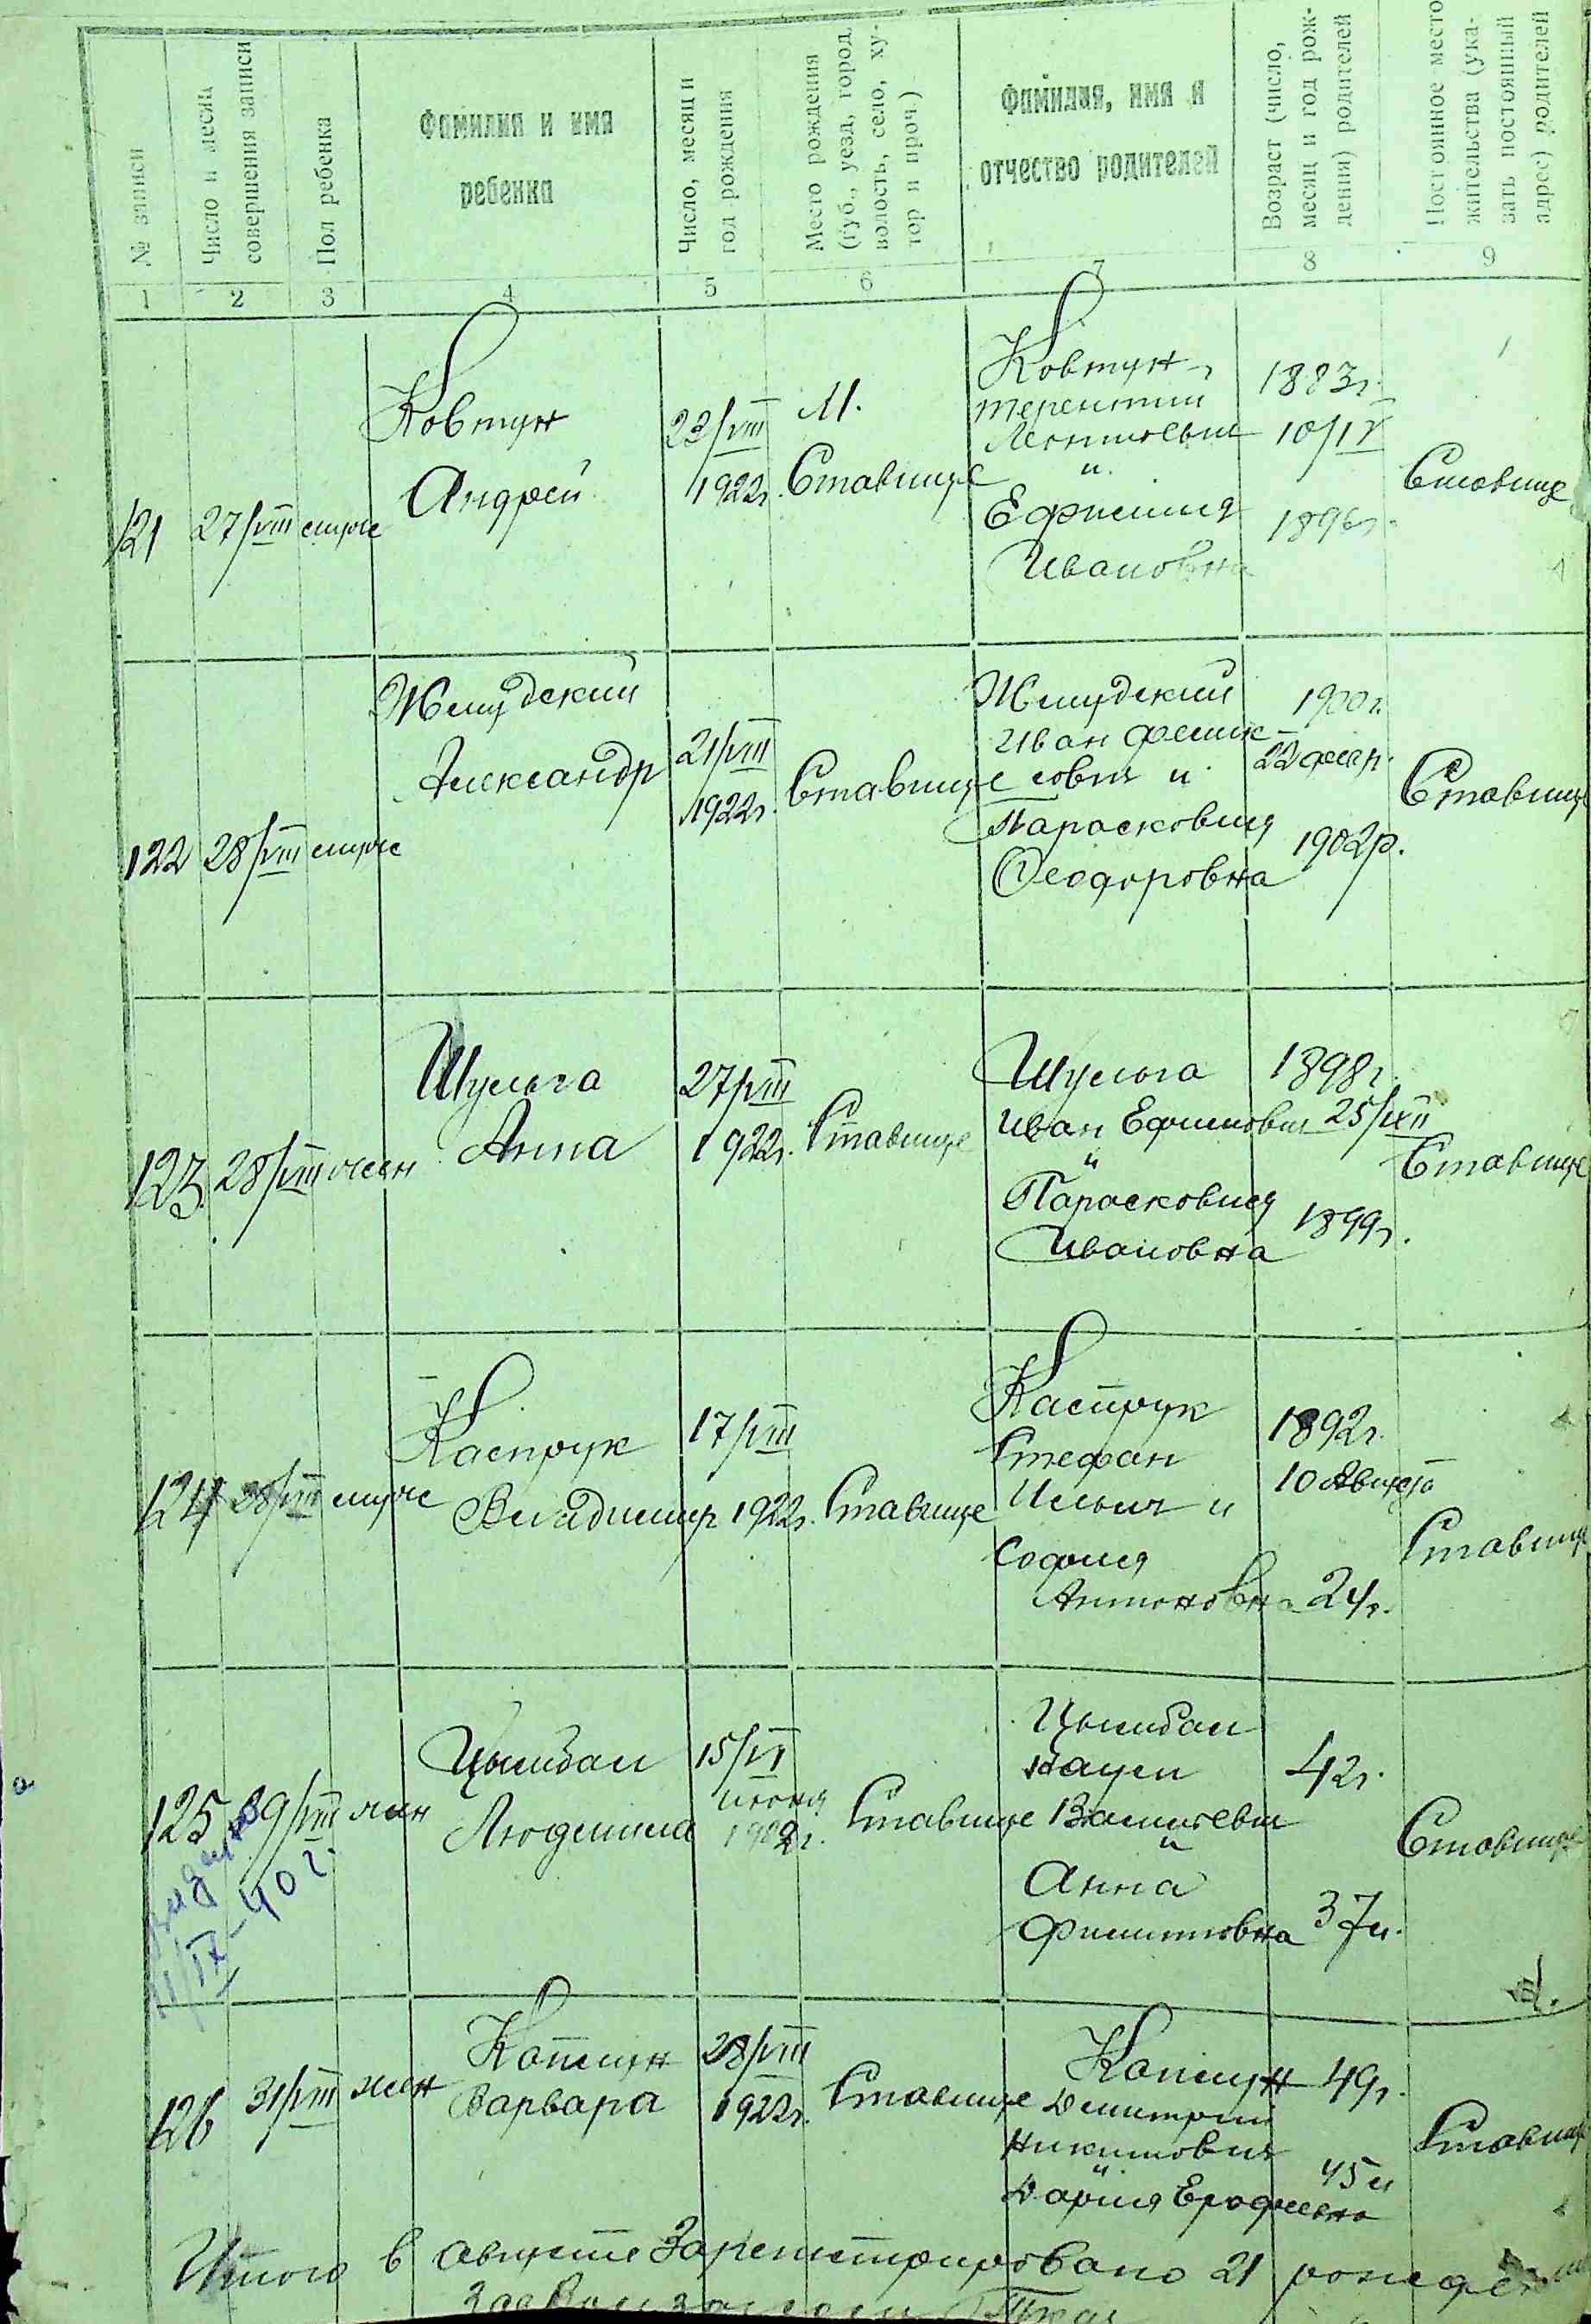 № записи
Число и месяц
совершения записи
Пол ребенка
Фамилия и имя
ребенка
Число, месяц и
год рождения
Место рождения
(губ., уезд, город,
волость, село, ху-
тор и проч.)
Фамилия, имя и
отчество родителей
Возраст (число,
месяц и год рож-
дения) родителей
Постоянное место
жительства (ука-
зать постоянный
адрес) родителей
1 2 3 4 5 6 7 8 9
121 27/VIII муж
Ковтун
Андрей
23/VIII
1922г.
М.
Ставище
Ковтун
Терентий
Леонтьевич
и
Ефимия
Ивановна
1883г.
10/IV
1896г.
Ставище
122 28/VIII муж
Жмудский
Александр
21/VIII
1922г.
Ставище
Жмудский
Иван Фелик-
сович и
Парасковия
Феодоровна
1900г.
22 февр.
1902р.
Ставище
123 28/VIII жен
Шульга
Анна
27/VIII
1922г.
Ставище
Шульга
Иван Ефимович
и
Парасковия
Ивановна
1898г.
25/XII
1899г.
Ставище
124 28/VIII муж
Каспрук
Владимир
17/VIII
1922г.
Ставище
Каспрук
Стефан
Ильич и
София
Антоновна
1892г.
10 Августа
24г.
Ставище
125 29/VIII жен
11/IX-40г.
Цымбал
Людмила
15/VI
июня
Ставище
Цымбал
Наум
Васильевич
и
Анна
Филиповна
42г.
37л.
Ставище
126 31/VIII жен
Варвара
28/VIII
1922г.
Ставище
Димитрий
Никитович
и
Дария Ерофеевна
49г.
45л
Ставище
Итого в августе Зарегистрировано 21 рожде